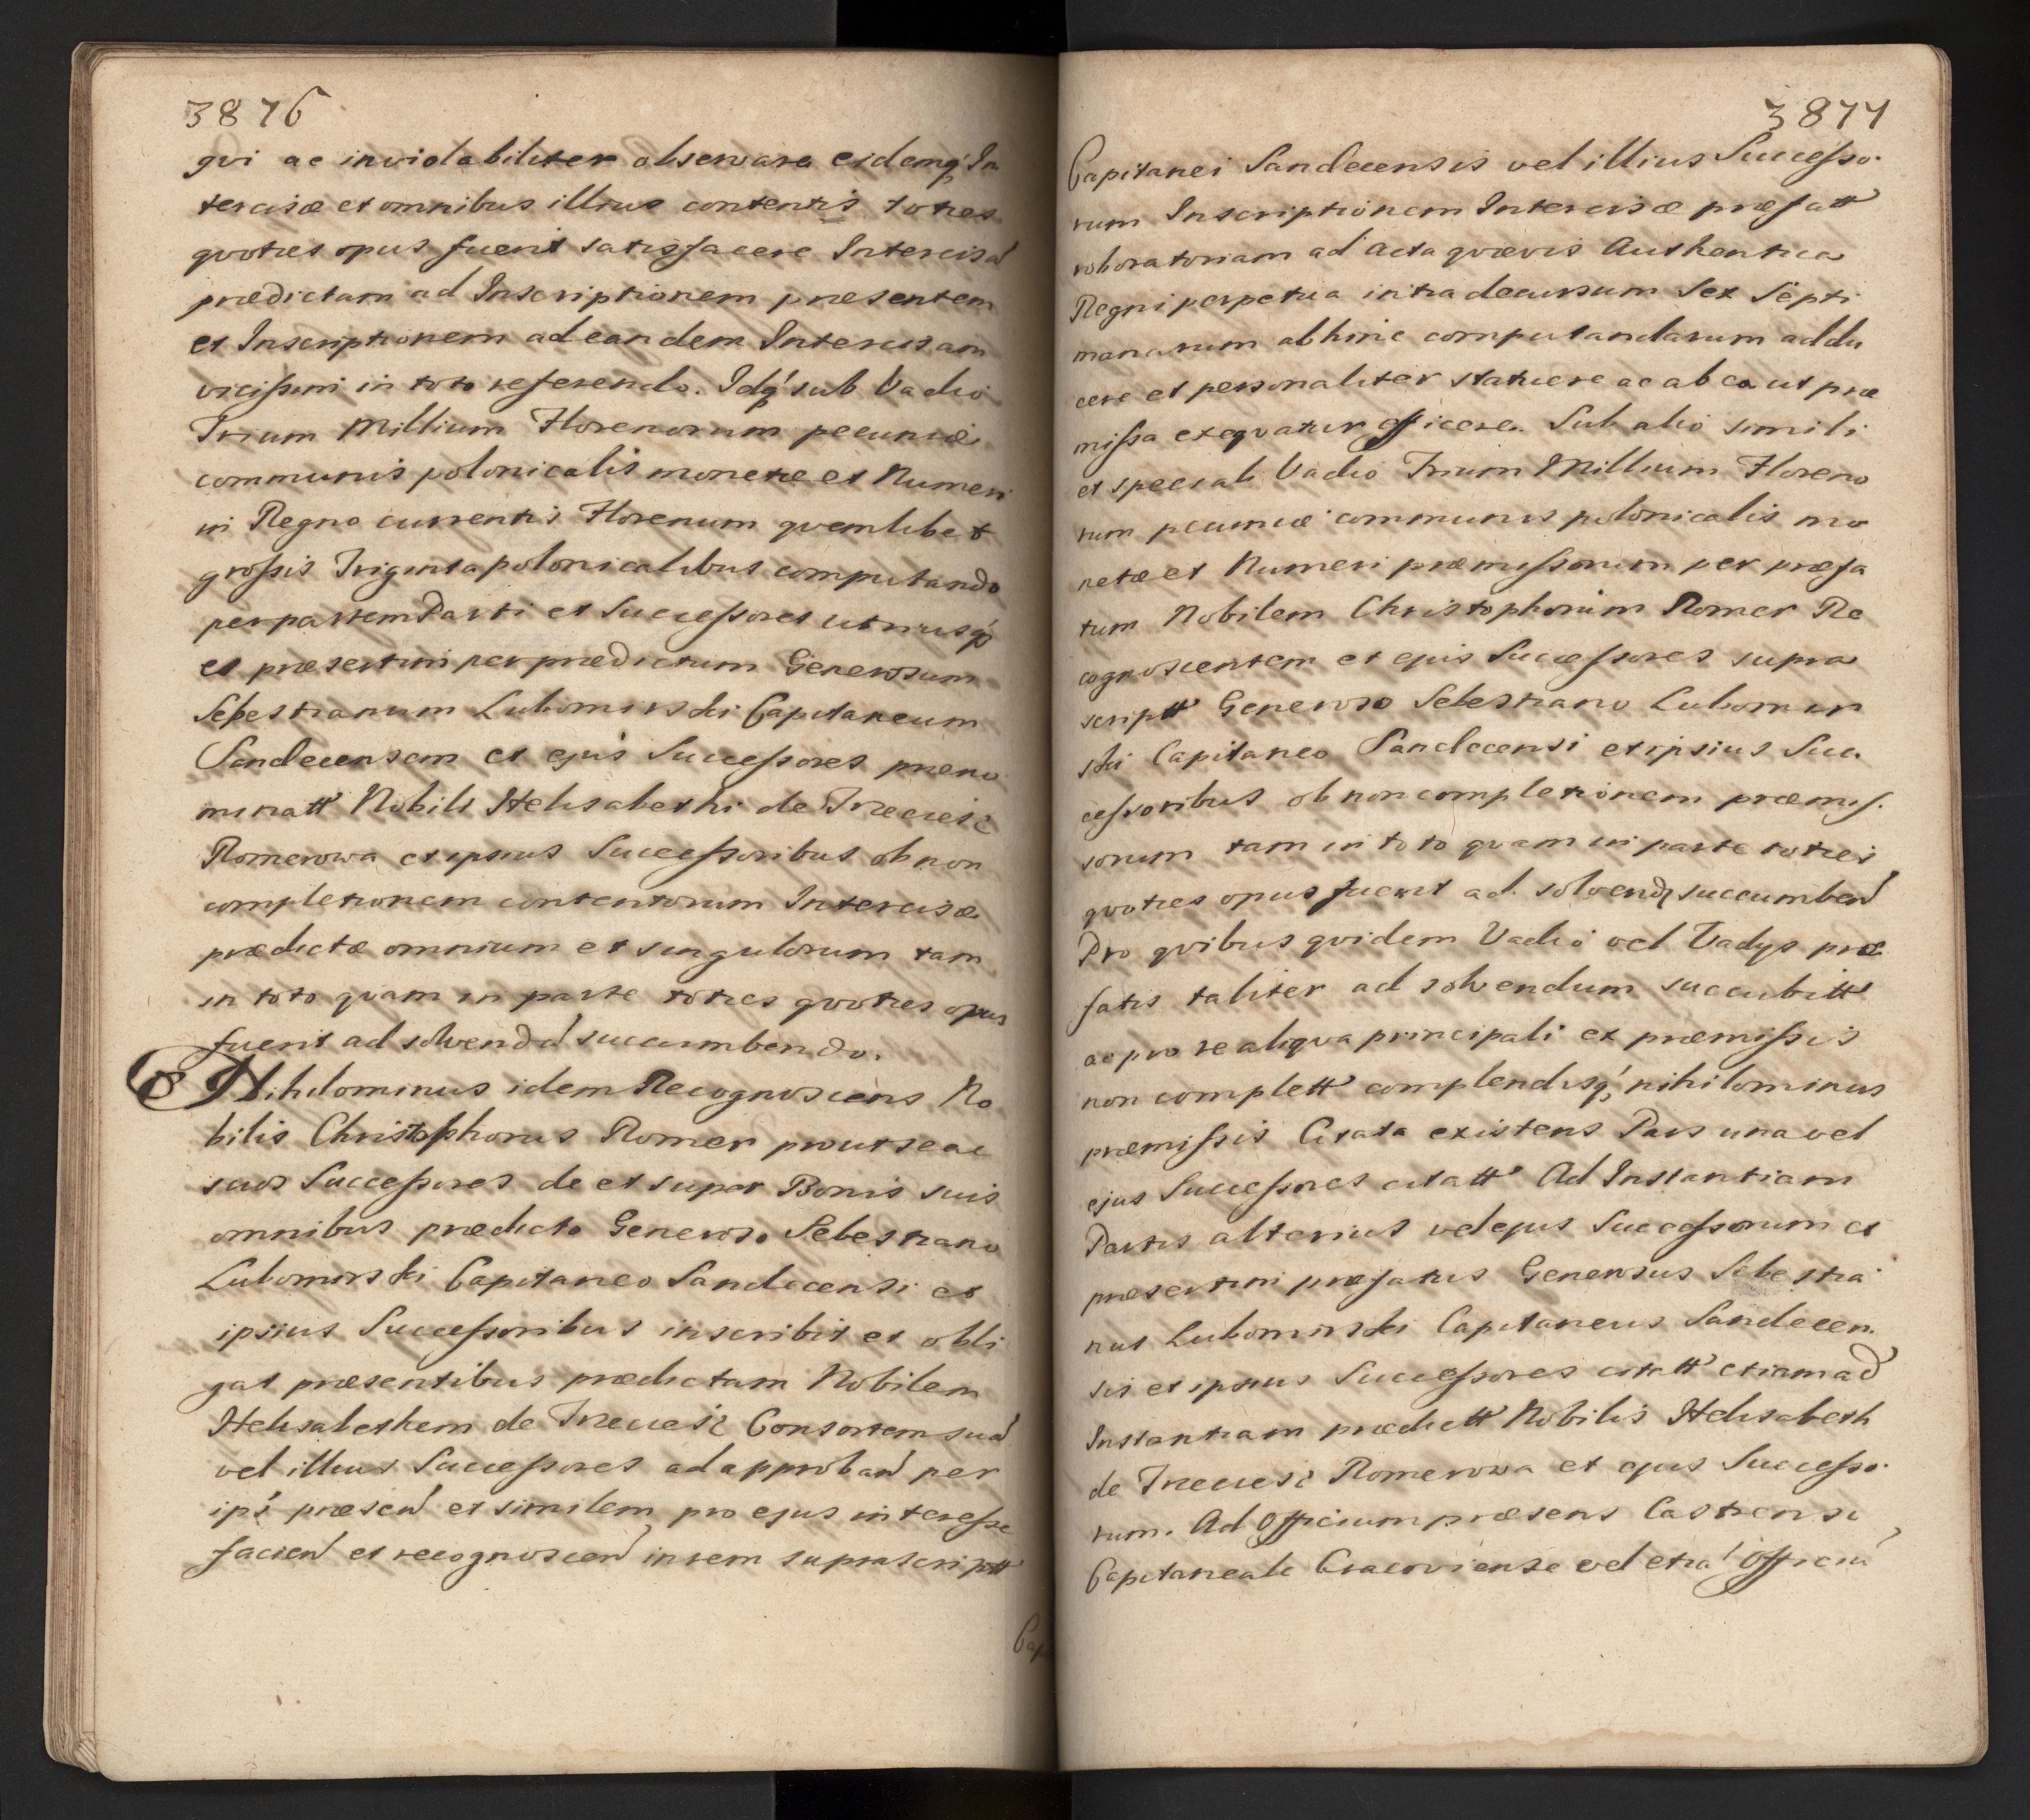 3876
qvi ac inviolabiliter observare eidemq́ In
tercisæ et omnibus illius contentis toties
qvoties opus fuerit satisfacere Intercisã
prædictam ad Inscriptionem præsentem
et Inscriptionem ad eandem Intercisam
vicißim in toto referendo. Idq́ sub Vadio
Trium Millium Florenorum pecuniæ
communis polonicalis monetæ et Numeri
in Regno currentis Florenum qvemlibet
großis Triginta polonicalibus computando
per partem Parti et Succeßores utriusq́
et præsertim per prædictum Generosum
Sebestianum Lubomirski Capitaneum
Sandecensem et ejus Succeßores præno
minatt Nobili Helisabethi de Trzecieśź
Romerowa et ipsius Succeßoribus ob non
completionem contentorum Intercisæ
prædictæ omnium et singulorum tam
in toto qvam in parte toties qvoties opus
fuerit ad solvendũ succumbendo.
Nihilominus idem Recognoscens No
bilis Christophorus Romer prout se ac
suos Succeßores de et super Bonis suis
omnibus prædicto Generoso Sebestiano
Lubomirski Capitaneo Sandecensi et
ipsius Succeßoribus inscribit et obli
gat præsentibus prædictam Nobilem
Helisabethem de Trzecieśź Consortem suã
vel illius Succeßores ad approband per
ips præsen et similem pro ejus intereße
facien et recognoscen in rem suprascriptt
Cap
3877
Capitanei Sandecensis vel illius Succeßo
rum Inscriptionem Intercisæ præfatt
roboratoriam ad Acta qvævis Authentica
Regni perpetua intra decursum Sex Septi
manarum abhinc computandarum addu
cere et personaliter statuere ac ab ea ut præ
mißa exeqvatur efficere. Sub alio simili
et speciali Vadio Trium Millium Floreno
rum pecuniæ communis polonicalis mo
netæ et Numeri præmißorum per præfa
tum Nobilem Christophorum Romer Re
cognoscentem et ejus Succeßores supra
scriptt Generoso Sebestiano Lubomir
ski Capitaneo Sandecensi et ipsius Suc
ceßoribus ob non completionem præmis
sorum tam in toto qvam in parte toties
qvoties opus fuerit ad solvend succumben
Pro qvibus qvidem Vadio vel Vadys præ
fatis taliter ad solvendum succubitt
ac pro re aliqva principali ex præmißis
non complett complendisq́ nihilominus
præmißis Citata existens Pars una vel
ejus Succeßores citatt Ad Instantiam
Partis alterius vel ejus Succeßorum et
præsertim præfatus Generosus Sebestia
nus Lubomirski Capitaneus Sandecen
sis et ipsius Succeßores citatt etiam ad
Instantiam prædictt Nobilis Helisabeth
de Trzecieśź Romerowa et ejus Succeßo
rum. Ad Officium præsens Castrense
Capitaneale Cracoviense vel etiã Officiũ